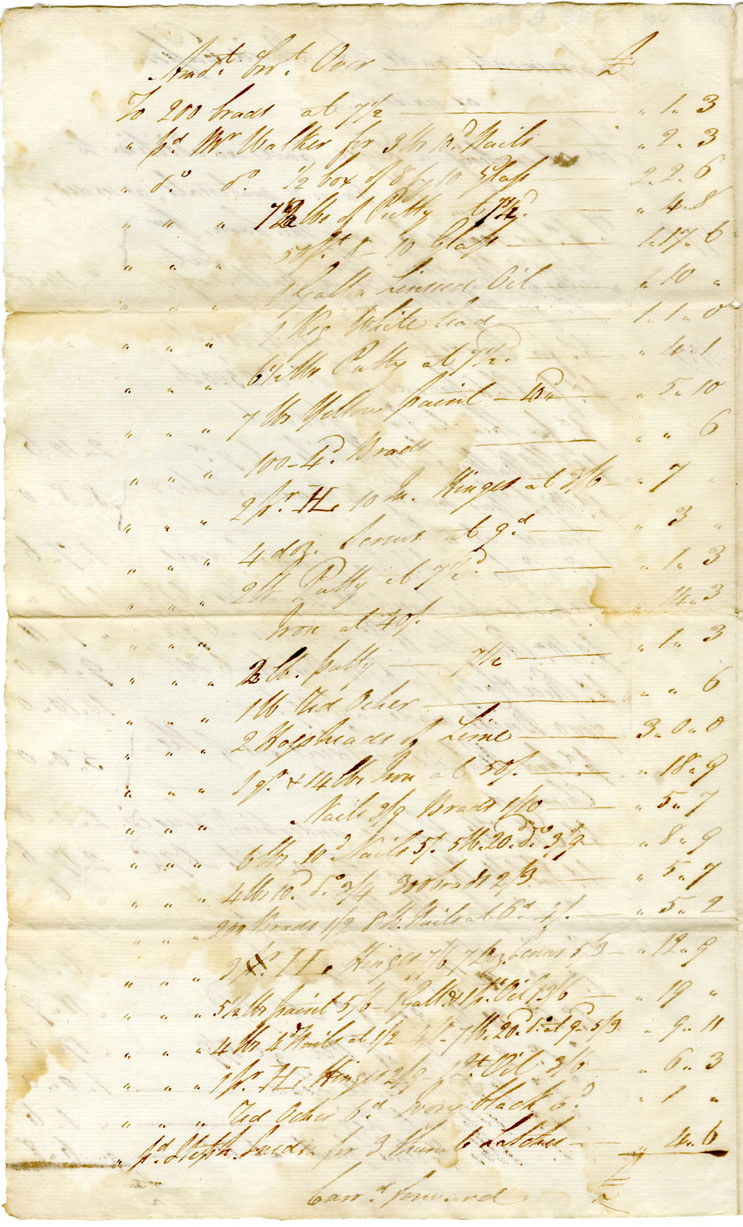 Amt. brt. Over £
To 200 brads at 7½ " 1 " 3
" pd. Mr Walker for 3 lb 10d Nails " 2 " 3
" do. do. ½ box of 8 by 10 Glass 2 " 2 " 6
" " " 7½ lbs of Putty at 7½d. " 4 " 8
" " " 8 - 10 Glass 1 " 17 " 6
" " " 1 Galln Linseed Oil " 10 "
" " " 1 Keg White lead 1 " 1 " 0
" " " 6½ lb Putty at 7½d. " 4 " 1
" " " 7 lb Yellow paint 10d " 5 " 10
" " " 100 - 4d. Brads " " 6
" " " 2 pr. H. 10 In. Hinges at 3/6 " 7 "
" " " 4 doz. Screws at 9d " 3 "
" " " 2 lb Putty at 7½d. " 1 " 3
" " " Iron at 40/. " 14 " 3
" " " 2 lb. putty 7½ " 1 " 3
" " " 1 lb Red Ocher " " 6
" " " 2 Hogsheads of Lime 3 " 0 " 0
" " " 1 qr & 14 lbs Iron at 50/. " 18 " 9
" " " Nails 3/9 Brads 1/10 " 5 " 7
" " " 6 lb 10d Nails 5/. 5 lb. 20d. do. 3/9 " 8 " 9
" " " 4 lb 10d. do 3/4 300 brads 2/3 " 5 " 7
" " " 200 Brads 1/2 8 lb. Nails at 6d 4/. " 5 " 2
" " " H. Hinges 7/6 Screws 5/3 " 12 " 9
" " " 5½ lb paint 5/6 Oil 13/6 " 19 "
" " " 4 lb 4d Nails at 1/2 7 lb. 20d. do. at 9d 5/3 " 9 " 11
" " " 1 pr. H. Hinges 2/9 Oil 3/6 " 6 " 3
" " " Red Ocher 6d Ivory black 6d " 1 "
" pd. Steph. for 3 thumb Latches " 4 " 6
Carrd. forward £